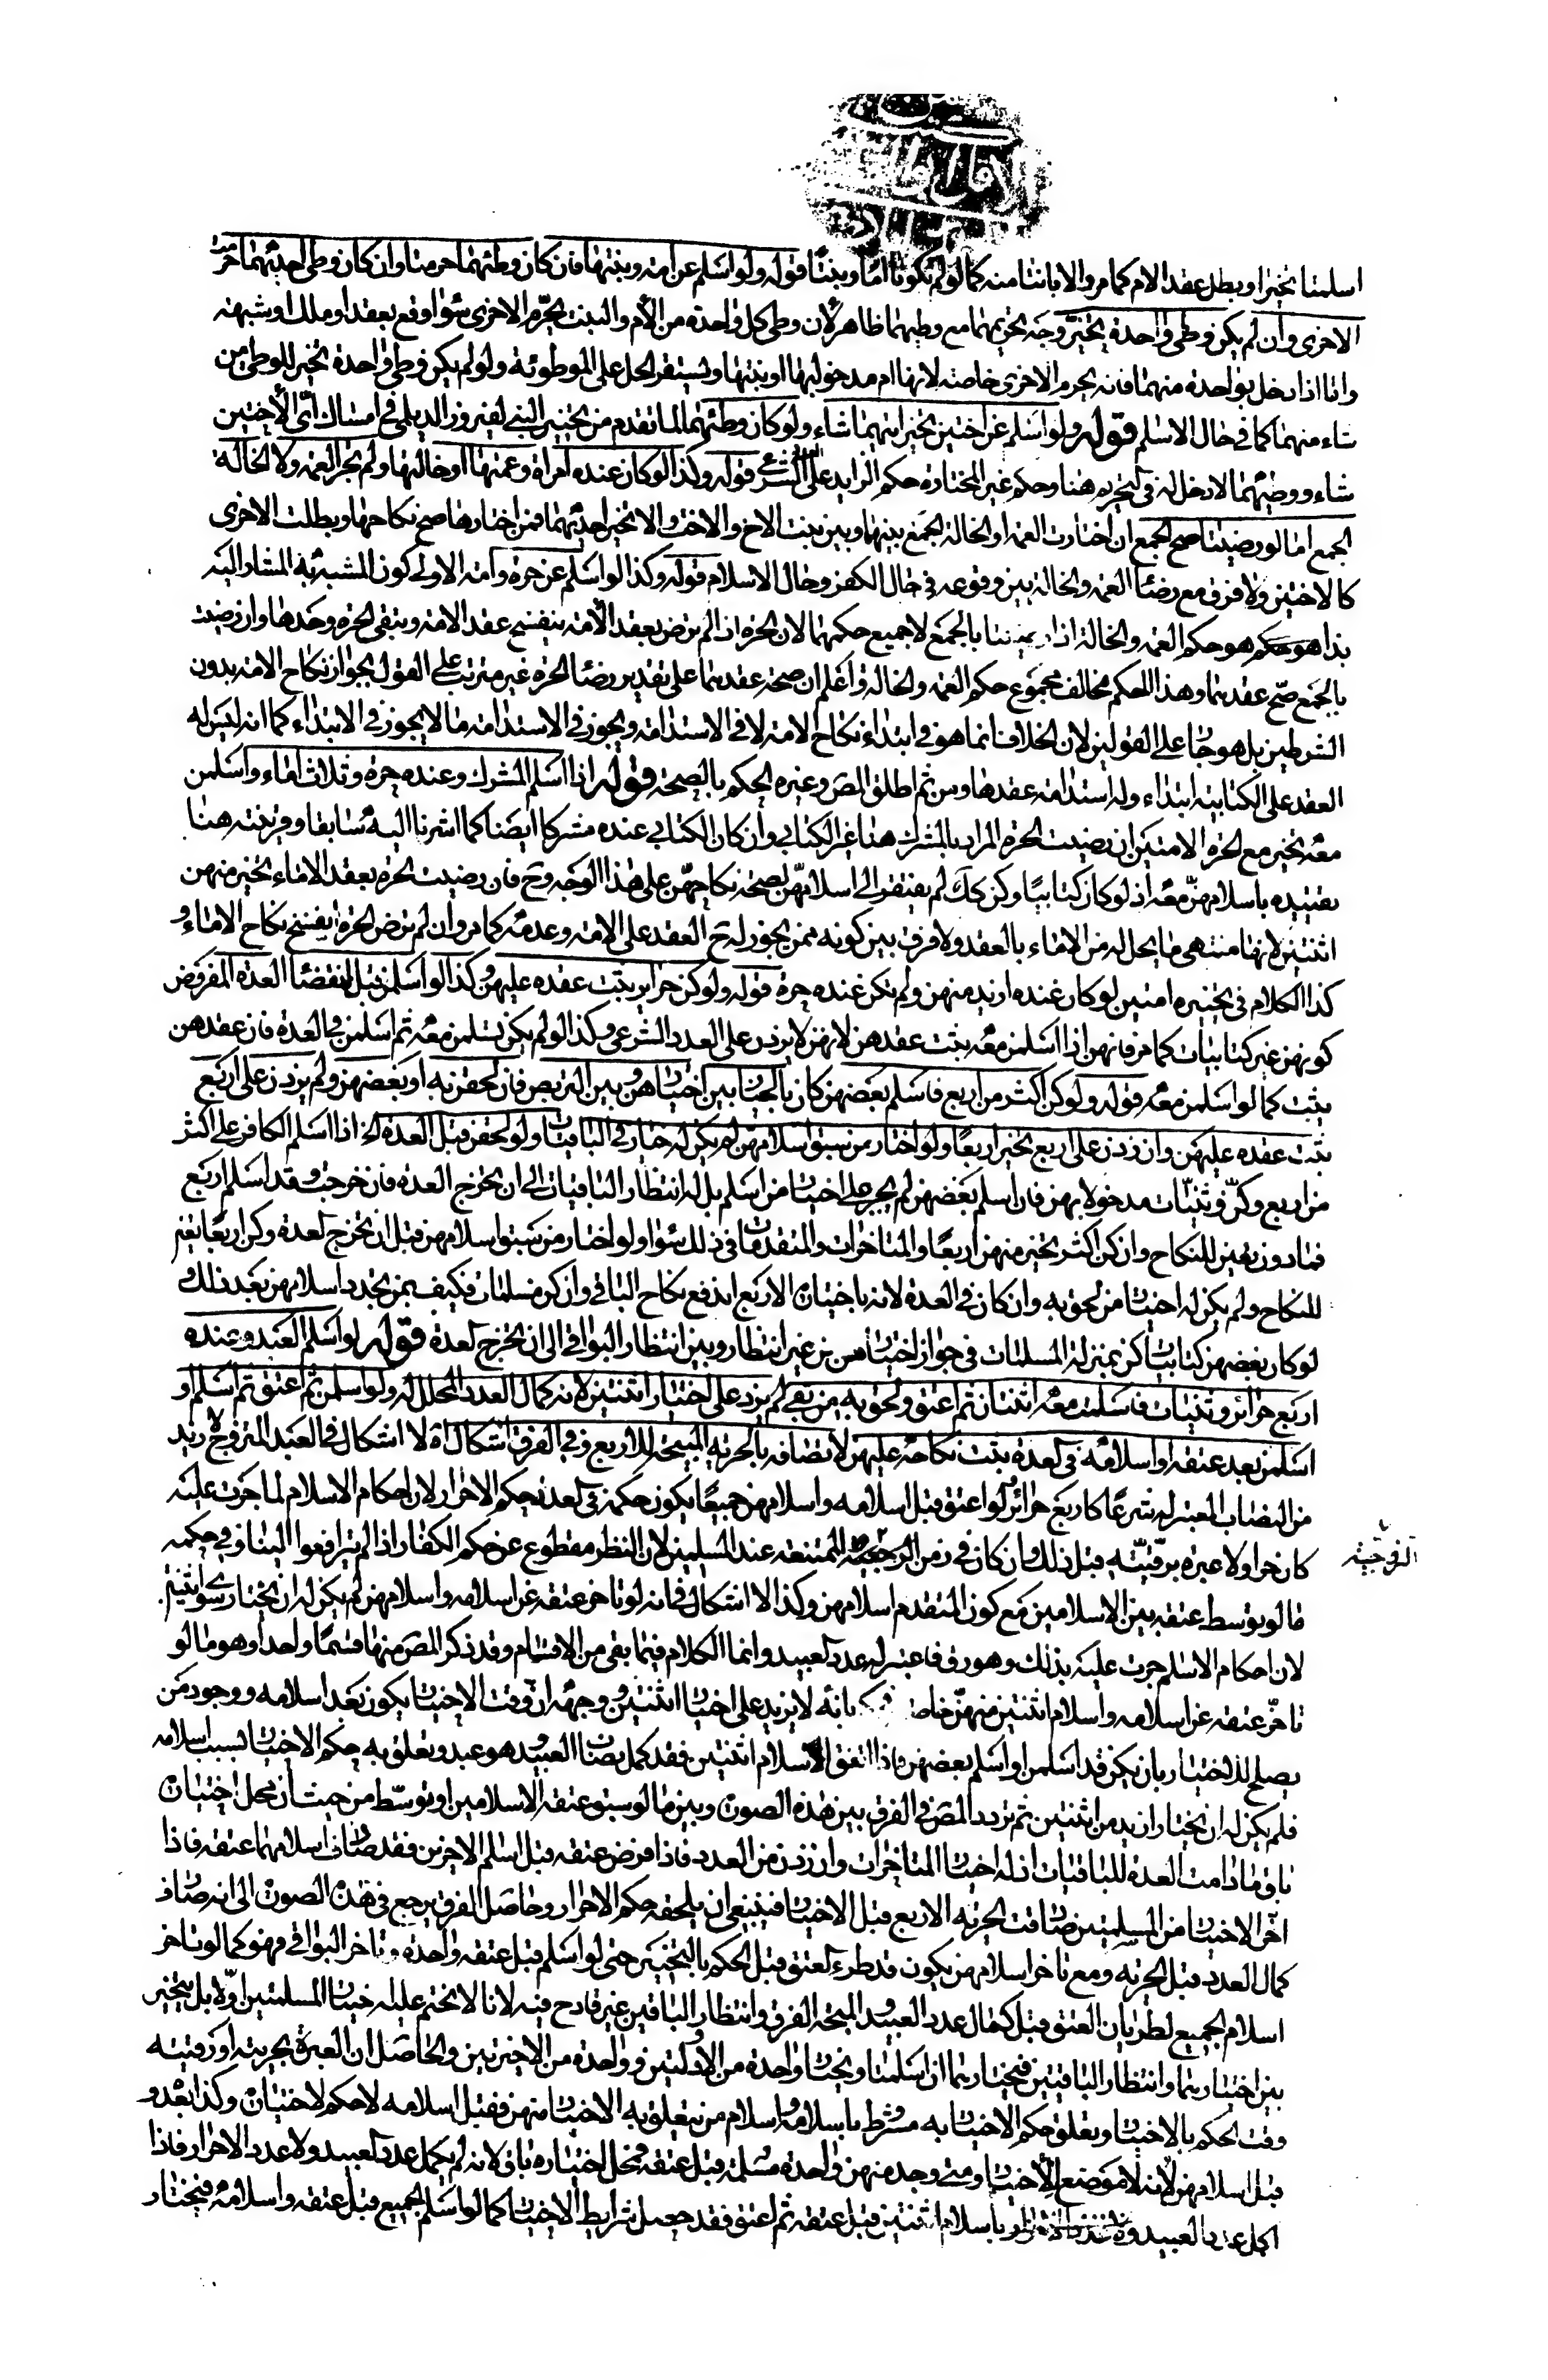 اسلمتا تخير او بطل عقد الام كما مر والا بانتا منه كما لو لم تكونا اما وبنتا قوله ولو اسلم عن امة وبنتها فان كان وطئهما حرمتا وان كان وطى احديهما حرمت
الاخرى وان لم يكن وطى واحدة تخير وجه تحريمهما مع وطيهما ظاهر لان وطى كل واحدة من الأم والبنت يحرم الاخرى سواء وقع بعقد او ملك او شبهة
واما اذا دخل بواحدة منهما فانه يحرم الاخرى خاصة لانها ام مدخول بها او بنتها ويستقر الحل على الموطوئة ولو لم يكن وطى واحدة تخير للوطى من
شاء منهما كما في حال الاسلم قوله ولو اسلم عن اختين تخير ايتهما شاء ولو كان وطئهما لما تقدم من تخيير النبي لفيروز الديلمي في امساك أي الأختين
شاء ووطيهما لا دخل له في التحريم هنا وحكم غير المختارة حكم الزايد على الشرعي قوله وكذا لو كان عنده امراة وعمتها او خالتها ولم تجز العمة ولا الخالة
الجمع اما لو رضيتا صح الجمع ان اختارت العمة او الخالة الجمع بينها وبين بنت الاخ والاخت والا تخير احديهما فمن اختارها صح نكاحها وبطلت الاخرى
كالاختين ولا فرق مع رضا العمة والخالة بين وقوعه في حال الكفر وحال الاسلام قوله وكذا لو اسلم عن حرة وامة الاولى كون المشبه به المشار اليه
بذا هو حكم العمة والخالة اذا بالجمع لا جميع حكمهما لان الحرة اذا لم ترض بعقد الأمة ينفسخ عقد الامة ويبقى الحرة وحدها وان رضيت
بالجمع صح عقدهما وهذا الحكم مخالف مجموع حكم العمة والخالة واعلم ان صحة عقدهما على تقدير رضا الحرة غير مترتب على القول بجواز نكاح الامة بدون
الشرطين بل هو جار على القولين لان الخلاف انما هو في ابتداء نكاح الامة لا في الاستدامة ويجوز في الاستدامة ما لا يجوز في الابتداء كما انه ليس له
العقد على الكتابية ابتداء وله استدامة عقدها ومن ثم اطلق المص وغيره الحكم بالصحة قوله اذا اسلم المشرك وعنده حرة وثلاث اماء واسلمن
معه تخير مع الحرة الامتين ان رضيت الحرة المراد بالمشرك هنا غير الكتابي وان كان الكتابي عنده مشركا ايضا كما اشرنا اليه سابقا وقرينته هنا
تقييده باسلامهن معه اذ لو كان كتابيا وكن كك لم يفتقر الى اسلامهن لصحة نكاحهن على هذا الوجه وح فان رضيت الحرة بعقد الاماء تخير منهن
اثنتين لانهما منتهى ما يحل له من الاماء بالعقد ولا فرق بين كونه ممن يجوز له ح العقد على الامة وعدمه كما مر وان لم ترض الحرة انفسخ نكاح الاماء و
كذا الكلام في تخييره امتين لو كان عنده ازيد منهن ولم تكن عنده حرة قوله ولو كن حراير ثبت عقده عليهن وكذا لو اسلمن قبل انقضاء العدة المفروض
كونهن غير كتابيات كما مر فانهن اذا اسلمن معه يثبت عقدهن لانهن لا يزدن على العدد الشرعي وكذا لو لم يكن تسلمن معه ثم اسلمن في العدة فان عقدهن
يثبت كما لو اسلمن معه قوله ولو كن اكثر من اربع فاسلم بعضهن كان بالخيار بين اختيارهن وبين التربص فان لحقن به او بعضهن ولم يزدن على اربع
ثبت عقده عليهن وان زدن على اربع تخير اربعا ولو اختار من سبق اسلامهن لم يكن له خيار في الباقيات ولو لحقن قبل العدة الخ اذا اسلم الكافر على اكثر
من اربع وكن وثنيات مدخولا بهن فان اسلم بعضهن لم يجبر على اختيار من اسلم بل له انتظار الباقيات الى ان يخرج العدة فان خرجت وقد اسلم اربع
فما دون تعين للنكاح وان كن اكثر تخير منهن اربعا والمتاخرات والمتقدمات في ذلك سواء ولو اختار من سبق اسلامهن قبل ان تخرج العدة وكن اربعا تعين
للنكاح ولم يكن له اختيار من لحق به وان كان في العدة لانه باختيار الاربع اندفع نكاح الباقي وان كن مسلمات فكيف بمن تجدد اسلامهن بعد ذلك و
لو كان بعضهن كتابيات كن بمنزلة المسلمات في جواز اختيارهن من غير انتظار وبين انتظار البواقي الى ان تخرج العدة قوله لو اسلم العبد وعنده
اربع حرائر وثنيات فاسلمت معه اثنتان ثم اعتق ولحق به من بقي لم يزد على اختيار اثنتين لانه كمال العدد المحلل له ولو اسلمن ثم اعتق ثم اسلم او
اسلمن بعد عتقه واسلامه في العدة ثبت نكاحه عليهن لاتصافه بالحرية المبيحة للاربع وفي الفرق اشكال اه لا اشكال في العبد المتزوج لازيد
من النصاب المعتبر له شرعا كاربع حرائر لو اعتق قبل اسلامه واسلامهن جميعا يكون حكمه في العدد حكم الاحرار لان احكام الاسلام لما جرت عليه
كان حرا ولا عبرة برقيته قبل ذلك وان كان في زمن الزوجية الممتنعة عند المسلمين لان النظر مقطوع عن حكم الكفار اذا لم يترافعوا الينا وفي حكمه
الزوجية
ما لو توسط عتقه بين الاسلامين مع كون المتقدم اسلامهن وكذا لا اشكال فانه لو تاخر عتقه عن اسلامه واسلامهن لم يكن له ان يختار سوى اثنتين
لان احكام الاسلم جرت عليه بذلك وهو رق فاعتبر له عدد العبيد وانما الكلام فيما بقى من الاقسام وقد ذكر المص منها قسما واحدا وهو ما لو
تاخر عتقه عن اسلامه واسلام اثنتين منهن خاصة بانه لا يزيد على اختيار اثنتين ووجهه ان وقت الاختيار يكون بعد اسلامه ووجود من
يصلح للاختيار بان يكن قد اسلمن او اسلم بعضهن فاذا اتفق اسلام اثنتين فقد كمل نصاب العبيد وهو عبد وتعلق به حكم الاختيار بسبب اسلامه
فلم يكن له ان يختار ازيد من اثنتين ثم تردد المص في الفرق بين هذه الصورة وبين ما لو سبق عتقه الاسلامين او توسط من حيث أن محل اختياره
باق ما دامت العدة للباقيات اذ له اختيار المتاخرات وان زدن من العدد فاذا فرض عتقه قبل اسلام الاخرين فقد صادف اسلامهما عتقه فاذا
اخر الاختيار من المسلمتين صادفت الحرية الاربع قبل الاختيار فينبغي ان يلحقه حكم الاحرار وحاصل الفرق يرجع في هذه الصورة الى انه صادف
كمال العدد قبل الحرية ومع تاخر اسلامهن يكون قد طرء العتق قبل الحكم بالتخيير حتى لو اسلم قبل عتقه واحدة وتاخر البواقي فهو كما لو تاخر
اسلام الجميع لطريان العتق قبل كمال عدد العبيد المبيحة الفرق وانتظار الباقين غير قادح فيه لانا لا نحتم عليه خيار المسلمتين اولا بل يتخير
بين اختيارهما وانتظار الباقيتين فيختارهما ان اسلمتا ويختار واحدة من الاولتين وواحدة من الاخيرتين والحاصل ان العبرة بحريته او رقيته
وقت الحكم بالاختيار وتعلق حكم الاختيار به مشروط باسلامه واسلام من يتعلق به الاختيار منهن فقبل اسلامه لا حكم لاختياره وكذا بعده و
قبل اسلامهن لانه لا موضع للاختيار ومتى وجد منهن واحدة مسلمة قبل عتقه فمحل اختياره باق لانه لم يكمل عدد العبيد ولا عدد الاحرار فاذا
اكمل عدد العبيد باسلام اثنتين قبل عتقه ثم اعتق فقد حصل شرايط الاختيار كما لو اسلم الجميع قبل عتقه واسلامه فيختار